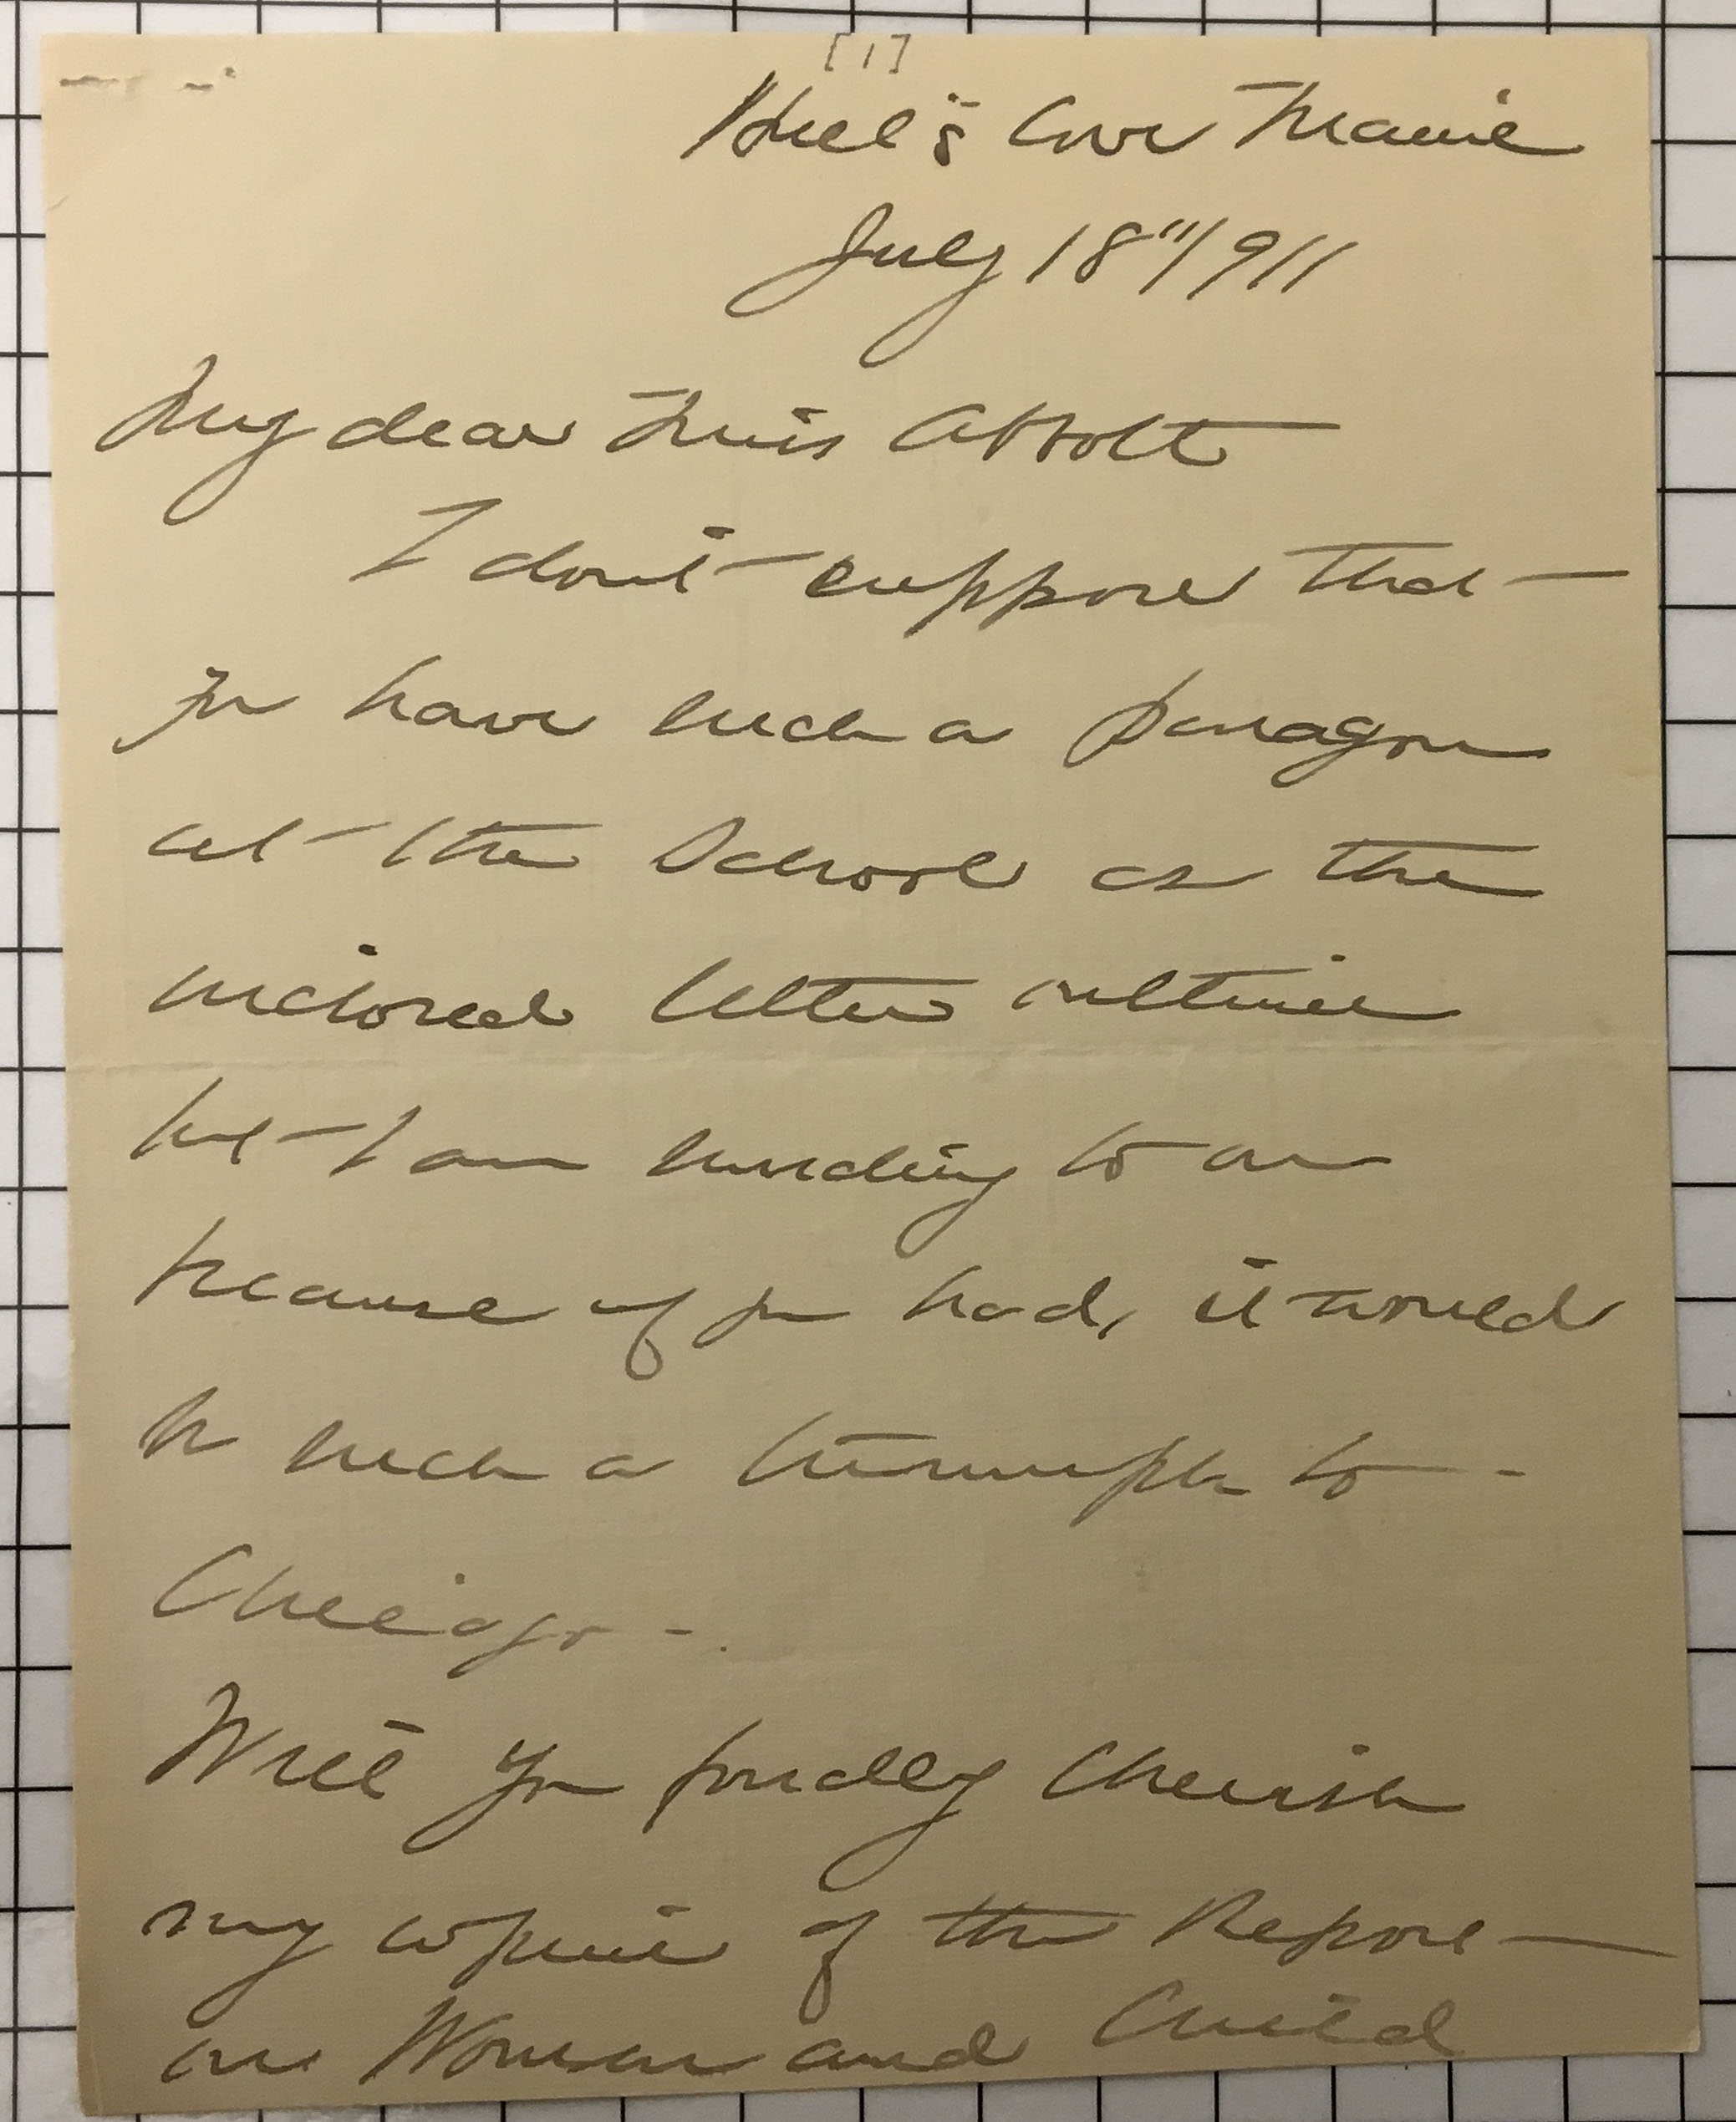 [1]
Hull's Cove Maine
July 18"/911
My dear Miss Abbott
I don't suppose that
you have such a paragon
at the School as the
inclosed letter outlines
but I am sending to on
because if you had, it would
be such a triumph to
Chicago -.
Will you kindly cherish
my copies of the Report
on Woman and Child